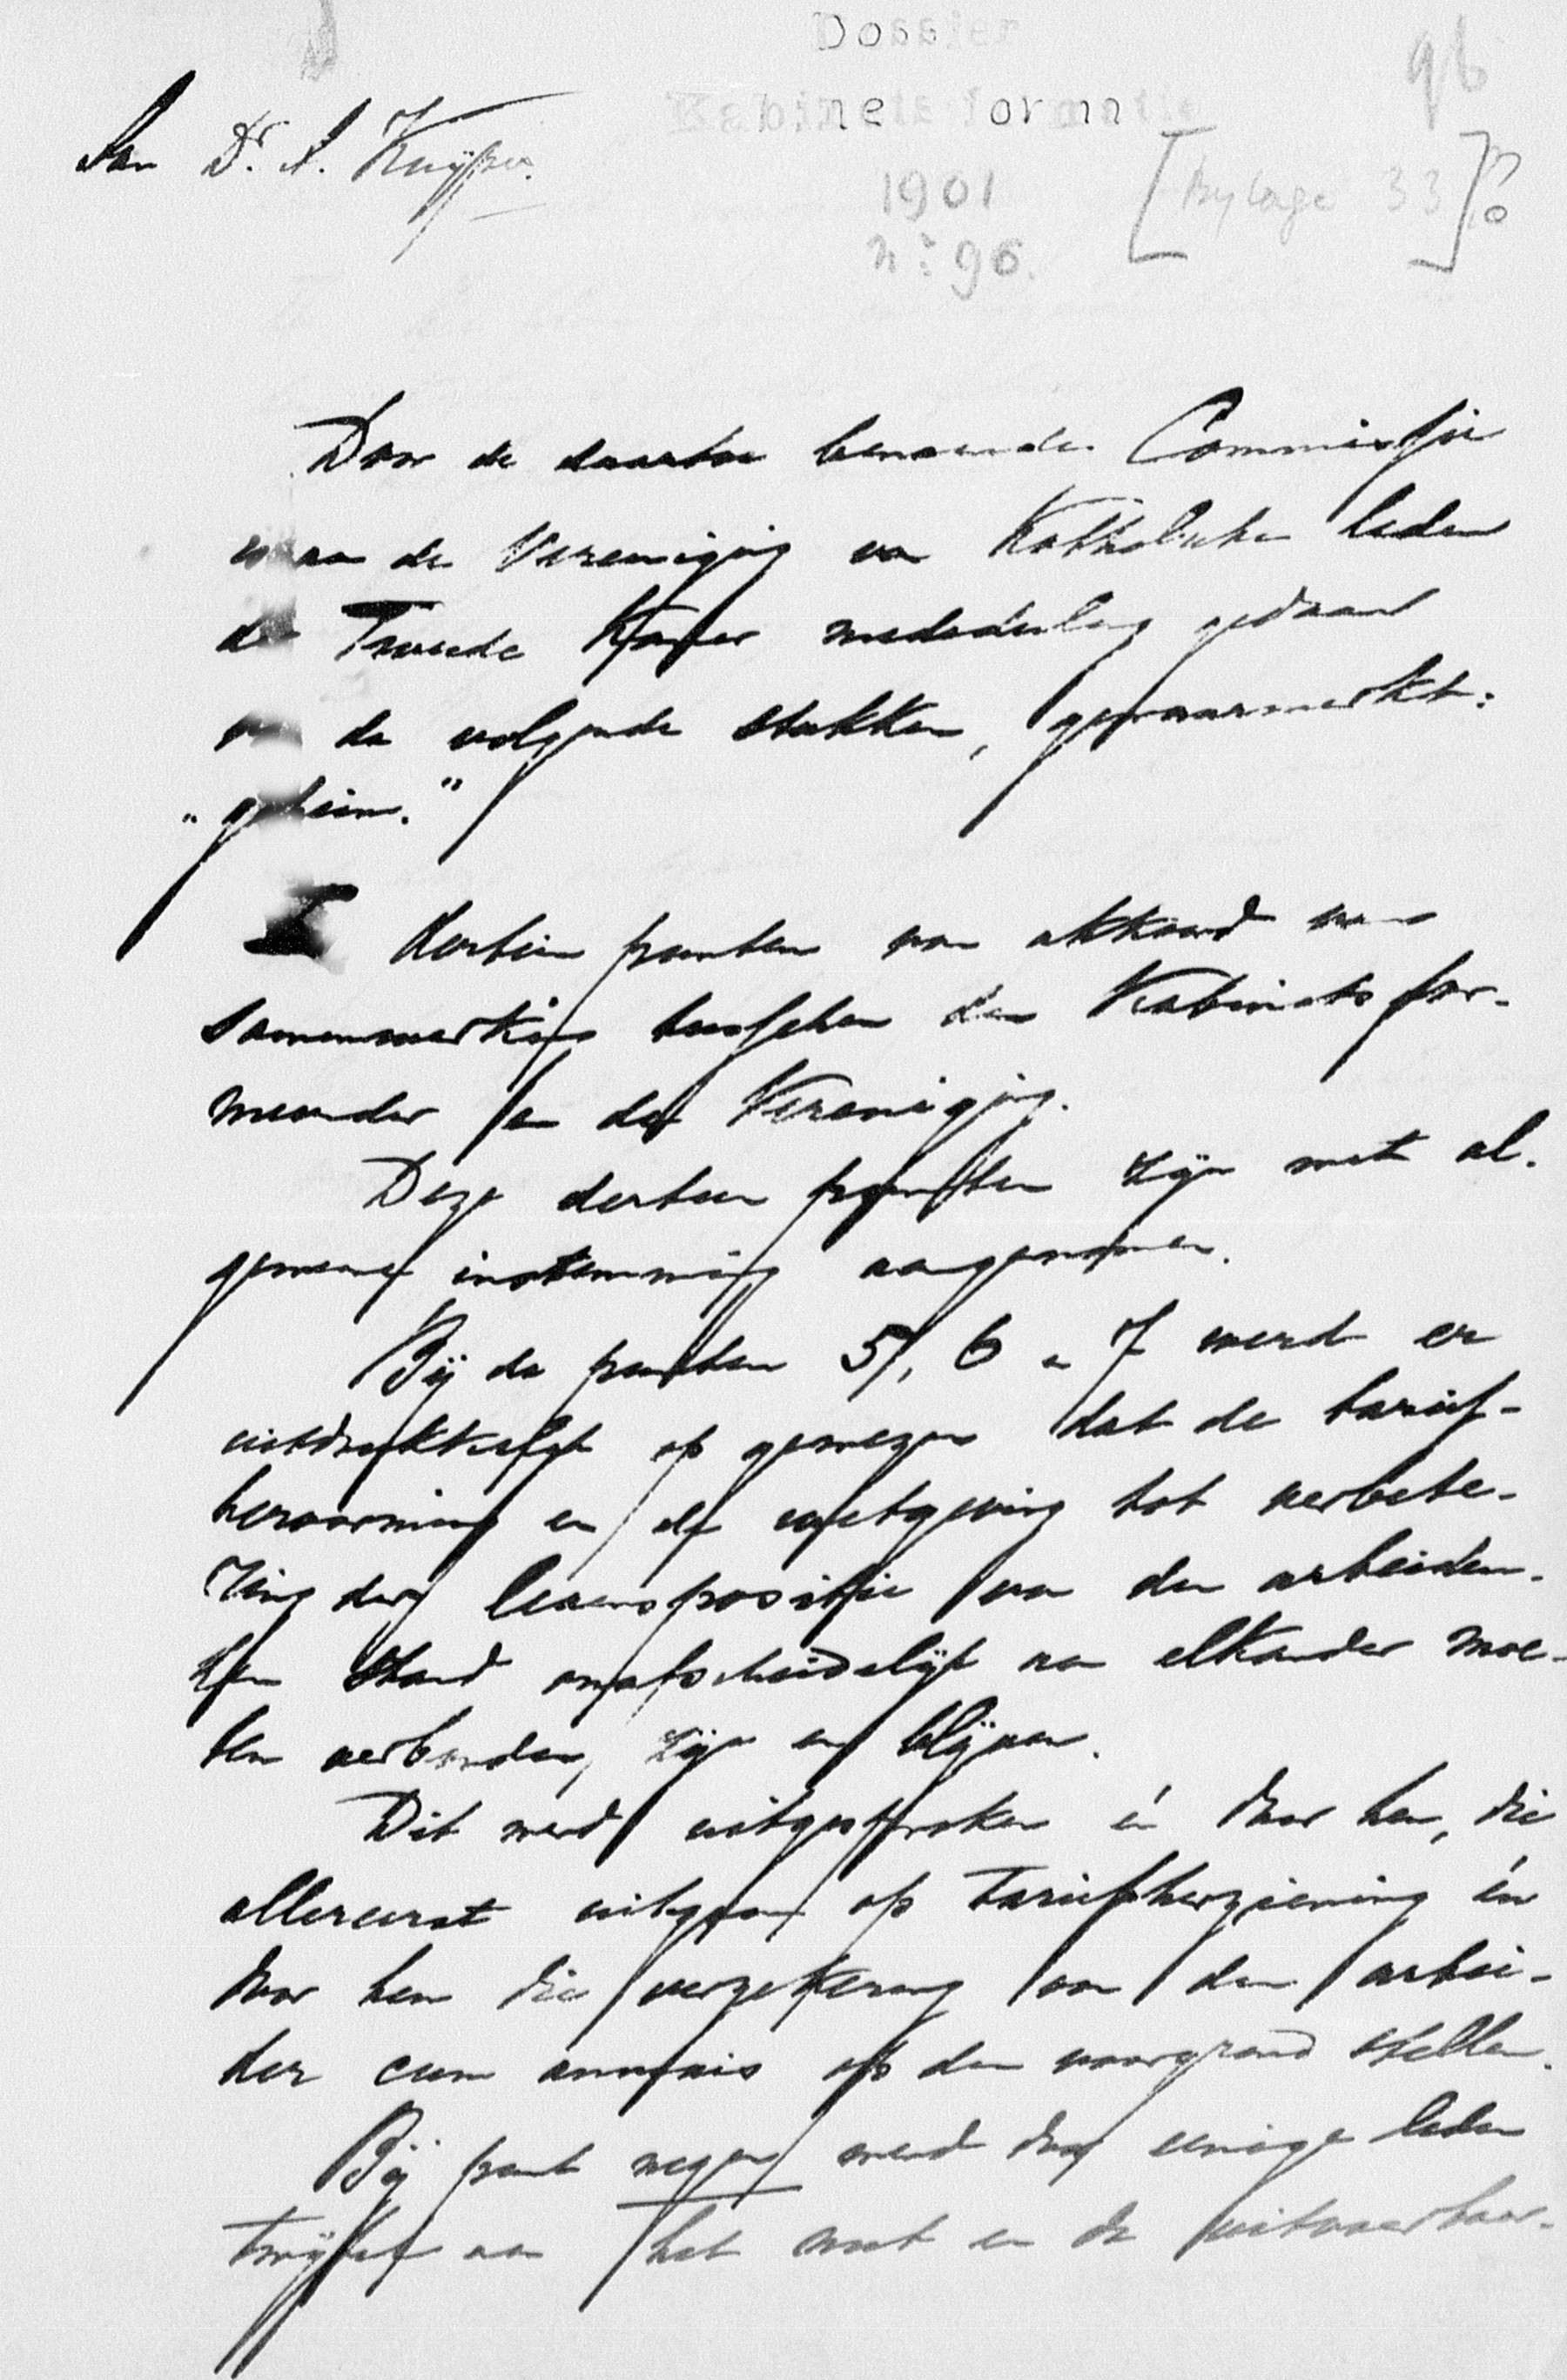 Dossier
96
Kabinetsformatie
Aan Dr. A. Kuyper.
1901
[Bylage 33]
no 96.
Door de daartoe benoemde Commissie
is aan de Vereeniging van Katholieke leden
der Tweede Kamer mededeeling gedaan
van de volgende stukken, gewaarmerkt:
"geheim."
I Dertien punten van akkoord van
samenwerking tusschen den Kabinetsfor-
meerder en de Vereeniging.
Deze dertien punten zijn met al-
gemeene instemming aangenomen.
Bij de punten 5, 6 en 7 werd er
uitdrukkelijk op gewezen dat de tarief-
hervorming en de wetgeving tot verbete-
ring der levenspositie van den arbeiden-
den stand onafscheidelijk aan elkander moe-
ten verbonden zijn en blijven.
Dit werd uitgesproken én door hen, die
allereerst uitgaan op tariefherziening én
door hen die verzekering van den arbei-
der cum annexis op den voorgrond stellen.
Bij punt negen werd door eenige leden
twijfel aan het nut en de uitvoerbaar-